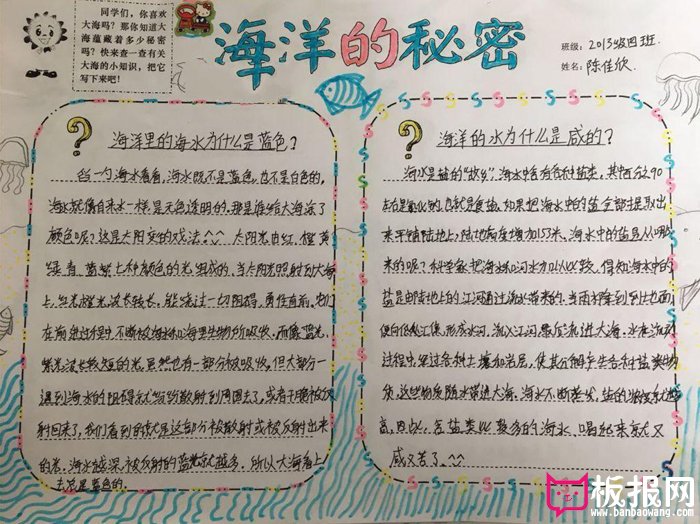 同学们，你喜欢
大海吗？那你知道大
海蕴藏着多少秘密
吗？快来查一查有关
大海的小知识，把它
写下来吧！
海洋的秘密
班级：2013级四班.
姓名：陈佳欣.
海洋里的海水为什么是蓝色？
舀一勺海水看看，海水既不是蓝色，也不是白色的，
海水就像自来水一样，是无色透明的，那是谁给大海涂了
颜色呢？这是太阳变的戏法。^^ 太阳光由红、橙、黄、
绿、青、蓝、紫七种颜色的光组成的，当太阳光照射到大海
上，红光、橙光，波长较长，能绕过一切阻碍，勇往直前。它们
在前进过程中，不断被海水和海里生物所吸收。而像蓝光、
紫光，波长较短的光，虽然也有一部分被吸收，但大部分一
遇到海水的阻碍就纷纷散射到周围去了，或者干脆被反
射回来了，我们看到的就是这部分被散射或被反射出来
的光。海水越深，被反射的蓝光就越多，所以大海看上
去总是蓝色的。
海洋的水为什么是咸的？
海水是盐的“故乡”，海水中含有各种盐类，其中百分之90
左右是氯化钠，也就是食盐。如果把海水中的盐全部提取出
来平铺陆地上，陆地高度增加153米，海水中的盐是从哪里
来的呢？科学家把海水和河水加以比较，得知海水中的
盐是由陆地上的江河通过流水带来的。当雨水降到到地面，
便向低处汇集，形成水河，流入江河，最后流进大海。水在流动
过程中，穿过各种土壤和岩层，使其分解产生各种盐类物
质，这些物质随水带进大海。海水不断蒸发，盐的浓度就越
高，因此，含盐类比较多的海水，喝起来就又
咸又苦了。^^
板报网
www.banbaowang.com